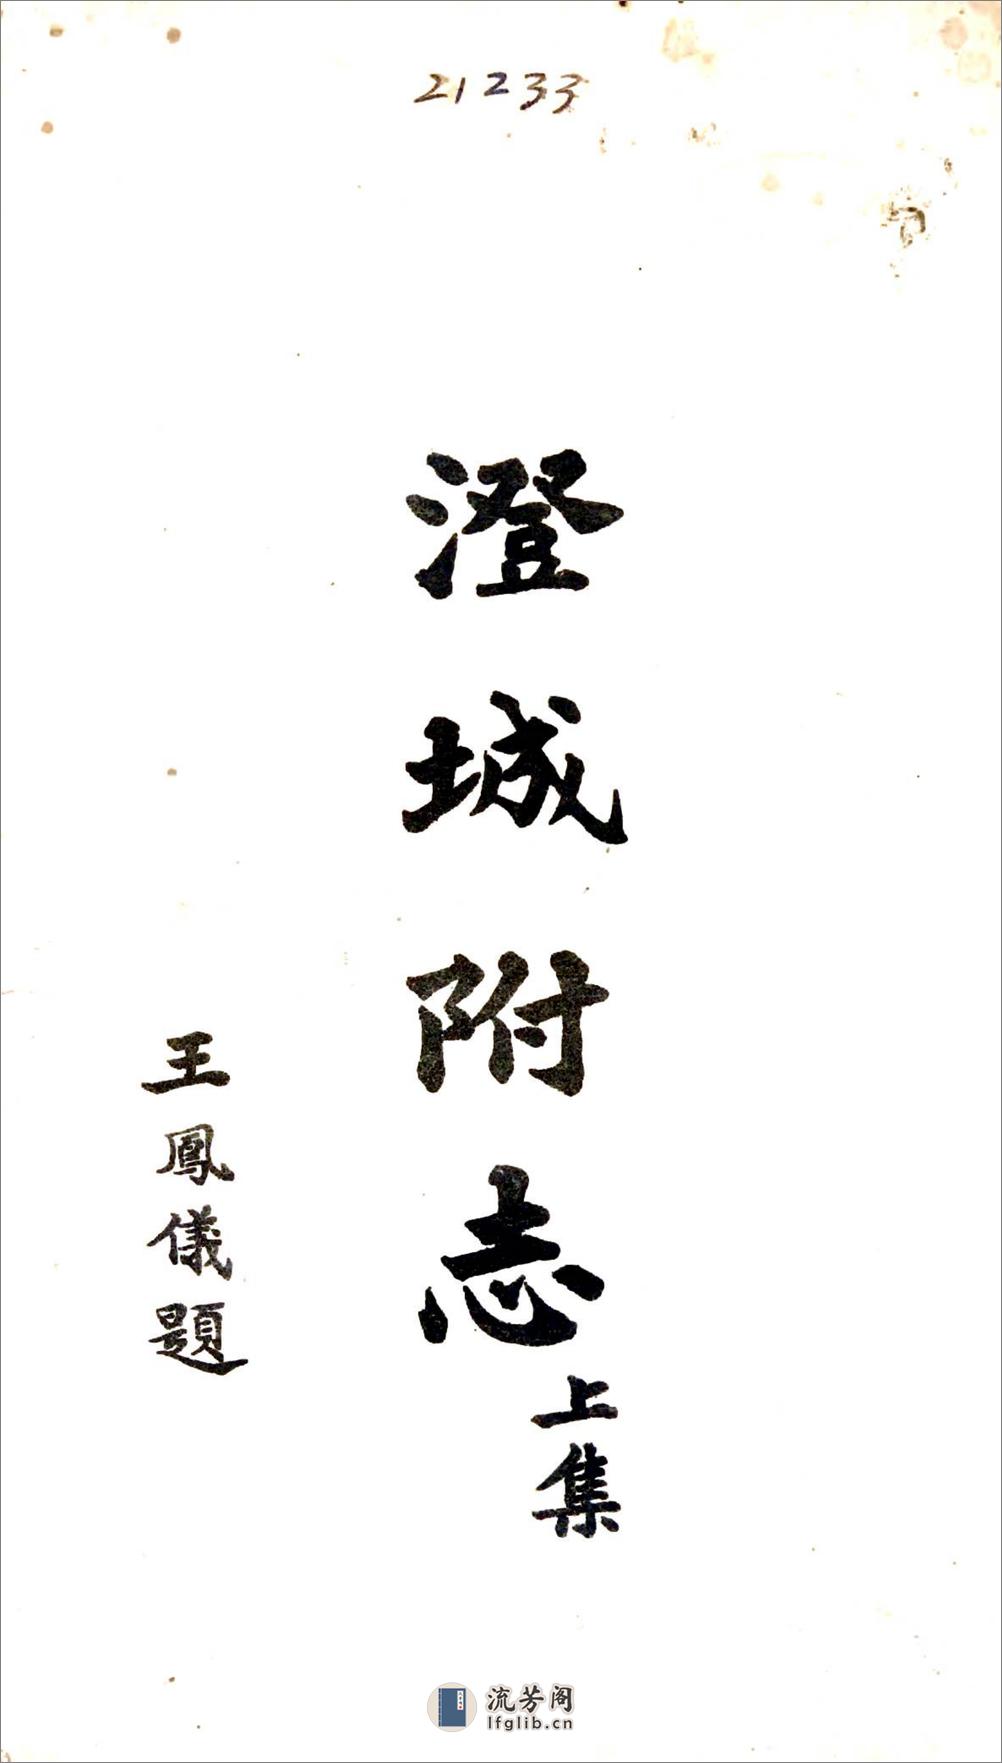 21233
澄城附志
上集
王鳳儀題
流芳阁
lfglib.cn